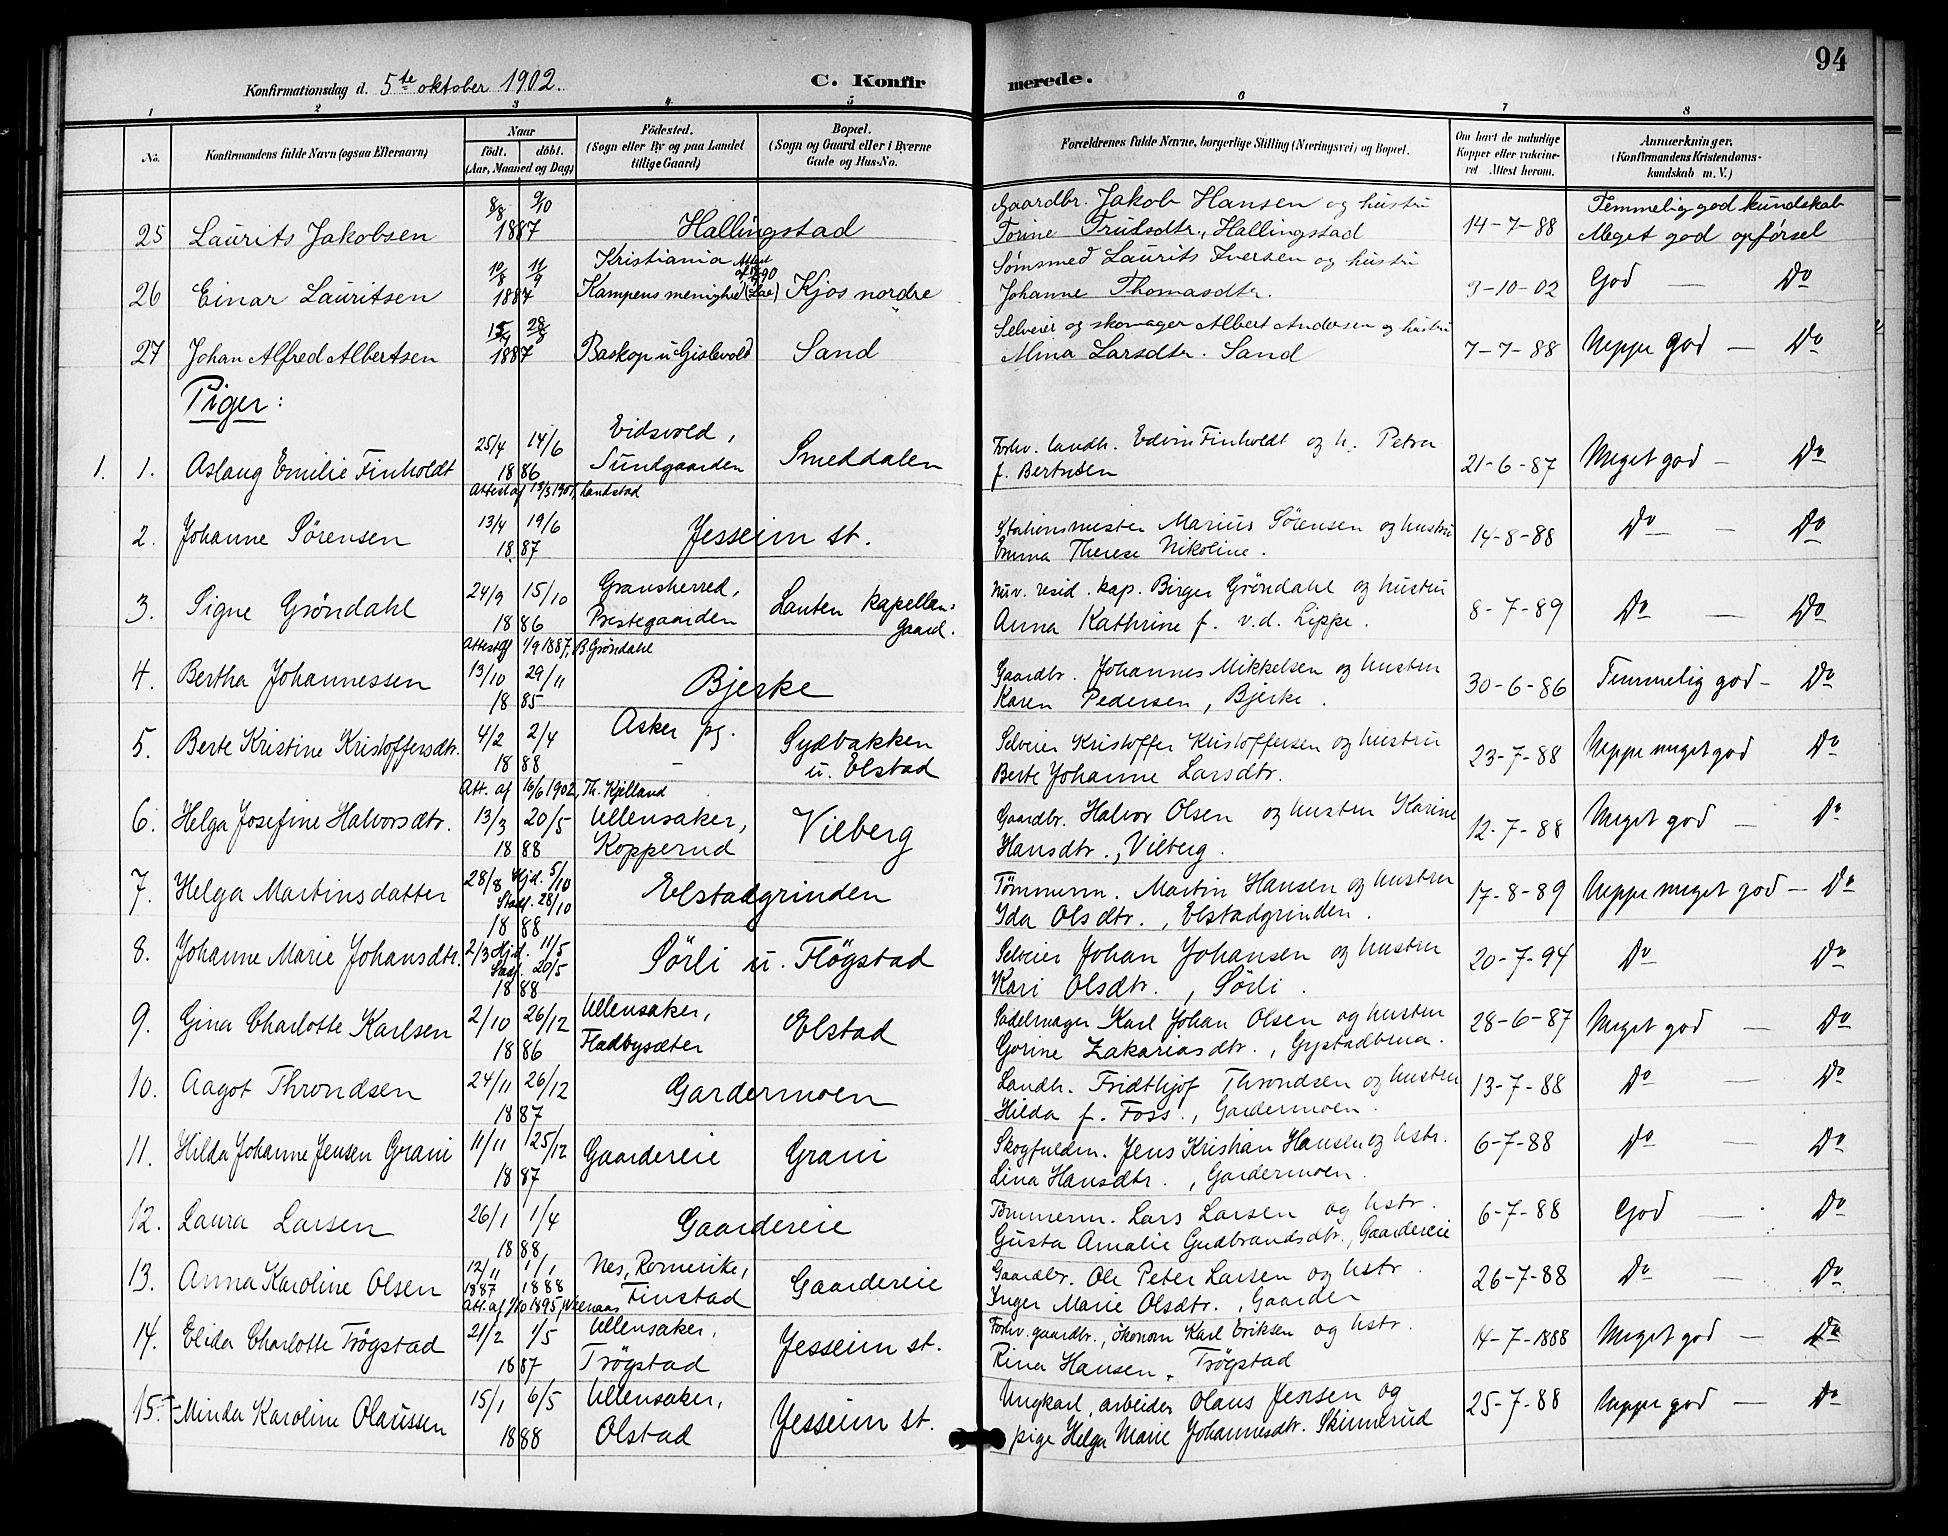 94
Konfirmationsdag d. 5te oktober 1902.
C. Konfirmerede.
1 2 3 4 5 6 7 8
No.
Konfirmandens fulde Navn (ogsaa Efternavn)
Naar
födt. döbt.
(Aar, Maaned og Dag)
Födested.
(Sogn eller By og paa Landet
tillige Gaard)
Bopæl.
(Sogn og Gaard eller i Byerne
Gade og Hus-No.
Forældrenes fulde Navne, borgerlige Stilling (Næringsvei) og Bopæl.
Om havt de naturlige
Kopper eller vakcine-
ret Attest herom.
Anmærkninger,
(Konfirmandens Kristendoms-
kundskab m. V.)
8/8 9/10 Gaardbr. Jakob Hansen og hustru Temmelig god kundskab
25 Laurits Jakobsen 1887 Hallingstad Torine Trulsdtr., Hallingstad 14-7-88 Meget god opførsel
10/8 11/9 Kristiania Attest Sømsmed Laurits Iversen og hustru
26 Einar Lauritsen 1887 Kampens menighed Kjos nordre Johanne Thomasdtr. 3-10-02 God — Do
28/8 Selveier og skomager Albert Andersen og hustru
27 Johan Alfred Albertsen 1887 Baskop u Gislevold Sand Alma Larsdtr. Sand 7-7-88 Neppe god — Do
Piger:
25/4 14/6 Eidsvold, Forhv. landh. Edvin Finholdt og h. Petra
1. 1. Aslaug Emilie Finholdt 1886 Sundgaarden Smeddalen f. Berntsen 21-6-87 Meget god — Do
Attest af 18/3 1901, Landstad
13/4 19/6 Stationsmester Marius Sörensen og hustru
2. Johanne Sörensen 1887 Jesseim st. Emma Therese Nikoline. 14-8-88 Do — Do
24/9 15/10 Gransherred, Nuv. resid. kap. Birger Gröndahl og hustru
3. Signe Gröndahl 1886 Prestegaarden Lauten kapellan-gaard. Anna Kathrine f. v.d. Lippe. 8-7-89 Do — Do
Attest af 1/9 1887, B. Gröndahl
13/10 29/11 Gaardbr. Johannes Mikkelsen og hustru
4. Bertha Johannessen 1885 Bjerke Karen Pedersen, Bjerke. 30-6-86 Temmelig god — Do
4/2 2/4 Asker pg. Sydbakken Selveier Kristoffer Kristoffersen og hustru
5. Berte Kristine Kristoffersdtr. 1888 — u. Elstad Berte Johanne Larsdtr. 23-7-88 Neppe meget god Do
Att. af 16/6 1902, Th. Kjelland
13/3 20/5 Ullensaker, Gaardbr. Halvor Olsen og hustru Karine
6. Helga Josefine Halvorsdtr. 1888 Kopperud Vilberg Hansdtr., Vilberg. 12-7-88 Meget god — Do
28/8 Hjd. 5/10 Tömmerm. Martin Hansen og hustru
Stadf. 28/10
7. Helga Martinsdatter 1888 Elstadgrinden Ida Olsdtr., Elstadgrinden. 17-8-89 Neppe meget god — Do
2/3 Hjd. 11/5 Selveier Johan Johansen og hustru
Stadf. 20/5
8. Johanne Marie Johansdtr. 1888 Sörli u. Flögstad Kari Olsdtr., Sörli. 20-7-94 Do Do
2/10 26/12 Ullensaker, Sadelmager Karl Johan Olsen og hustru
9. Gina Charlotte Karlsen 1886 Fladbysæter Elstad Gorine Zakariasdtr., 28-6-87 Meget god — Do
24/11 26/12 Landh. Fridthjof Throndsen og hustru
10. Aagot Throndsen 1887 Gardermoen Hilda f. Foss., Gardermoen. 13-7-88 Do — Do
11/11 25/12 Jens Kristian Hansen og hstr.
11. Hilda Johanne Jensen Grani 1887 Gaardereie Grani Lina Hansdtr., Gardermoen. 6-7-88 Do — Do
26/1 1/4 Tömmerm. Lars Larsen og hstr.
12. Laura Larsen 1888 Gaardereie Gusta Amalie Gudbrandsdtr., Gaardereie 6-7-88 God — Do
12/11 1/1 Nes, Romerike, Gaardbr. Ole Peter Larsen og hstr.
13. Anna Karoline Olsen 1887 1888 Finstad Gaardereie Inger Marie Olsdtr., Gaarder 26-7-88 Do — Do
Att. af 1/10 1895,
21/2 1/5 Ullensaker, Forhv. gaardbr., ökonom Karl Eriksen og hstr.
14. Elida Charlotte Trögstad 1887 Trögstad Jesseim st. Rina Hansen, Trögstad 14-7-1888 Meget god — Do
15/1 6/5 Ullensaker, Ungkarl, arbeider Olaus Jensen og
15. Minda Karoline Olaussen 1888 Olstad Jesseim st. pige Helga Marie Johannesdtr. Skinnerud 25-7-88 Neppe god — Do